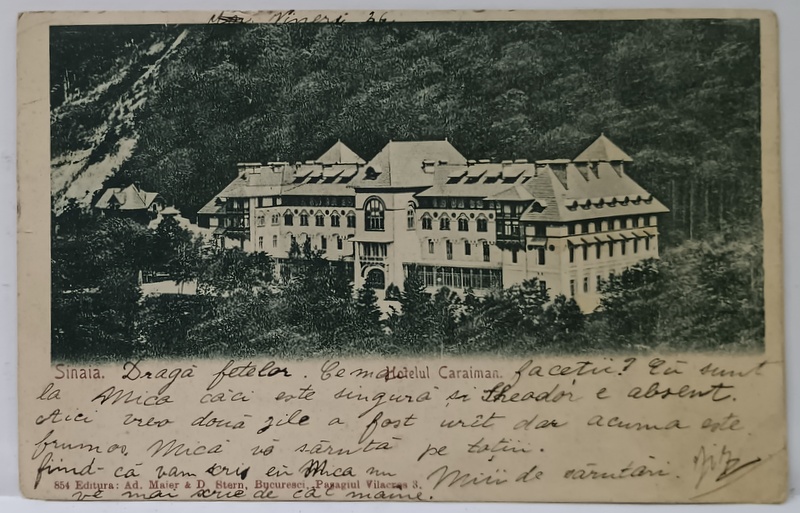 Vineri 26.
Sinaia. Dragă fetelor. Ce mai Hotelul Caraiman. faceții? Eŭ sunt
la Mica căci este singură si Theodor e absent.
Aici vreo două zile a fost urît dar acuma este
frumos. Mică vă sărută pe totiĭ.
fiind-că vam scris eŭ Mica nu Miĭ de sărutări.
854 Editura: Ad. Maier & D. Stern, Bucuresci, Pasagiul Vilacros 3.
vĕ mai scrie de cât maine.